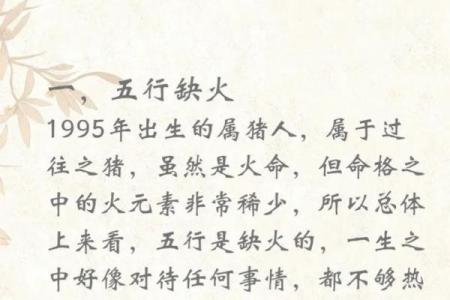 一，五行缺火
1995年出生的属猪人，属于过
往之猪，虽然是火命，但命格之
中的火元素非常稀少，所以总体
上来看，五行是缺火的，一生之
中好像对待任何事情，都不够热